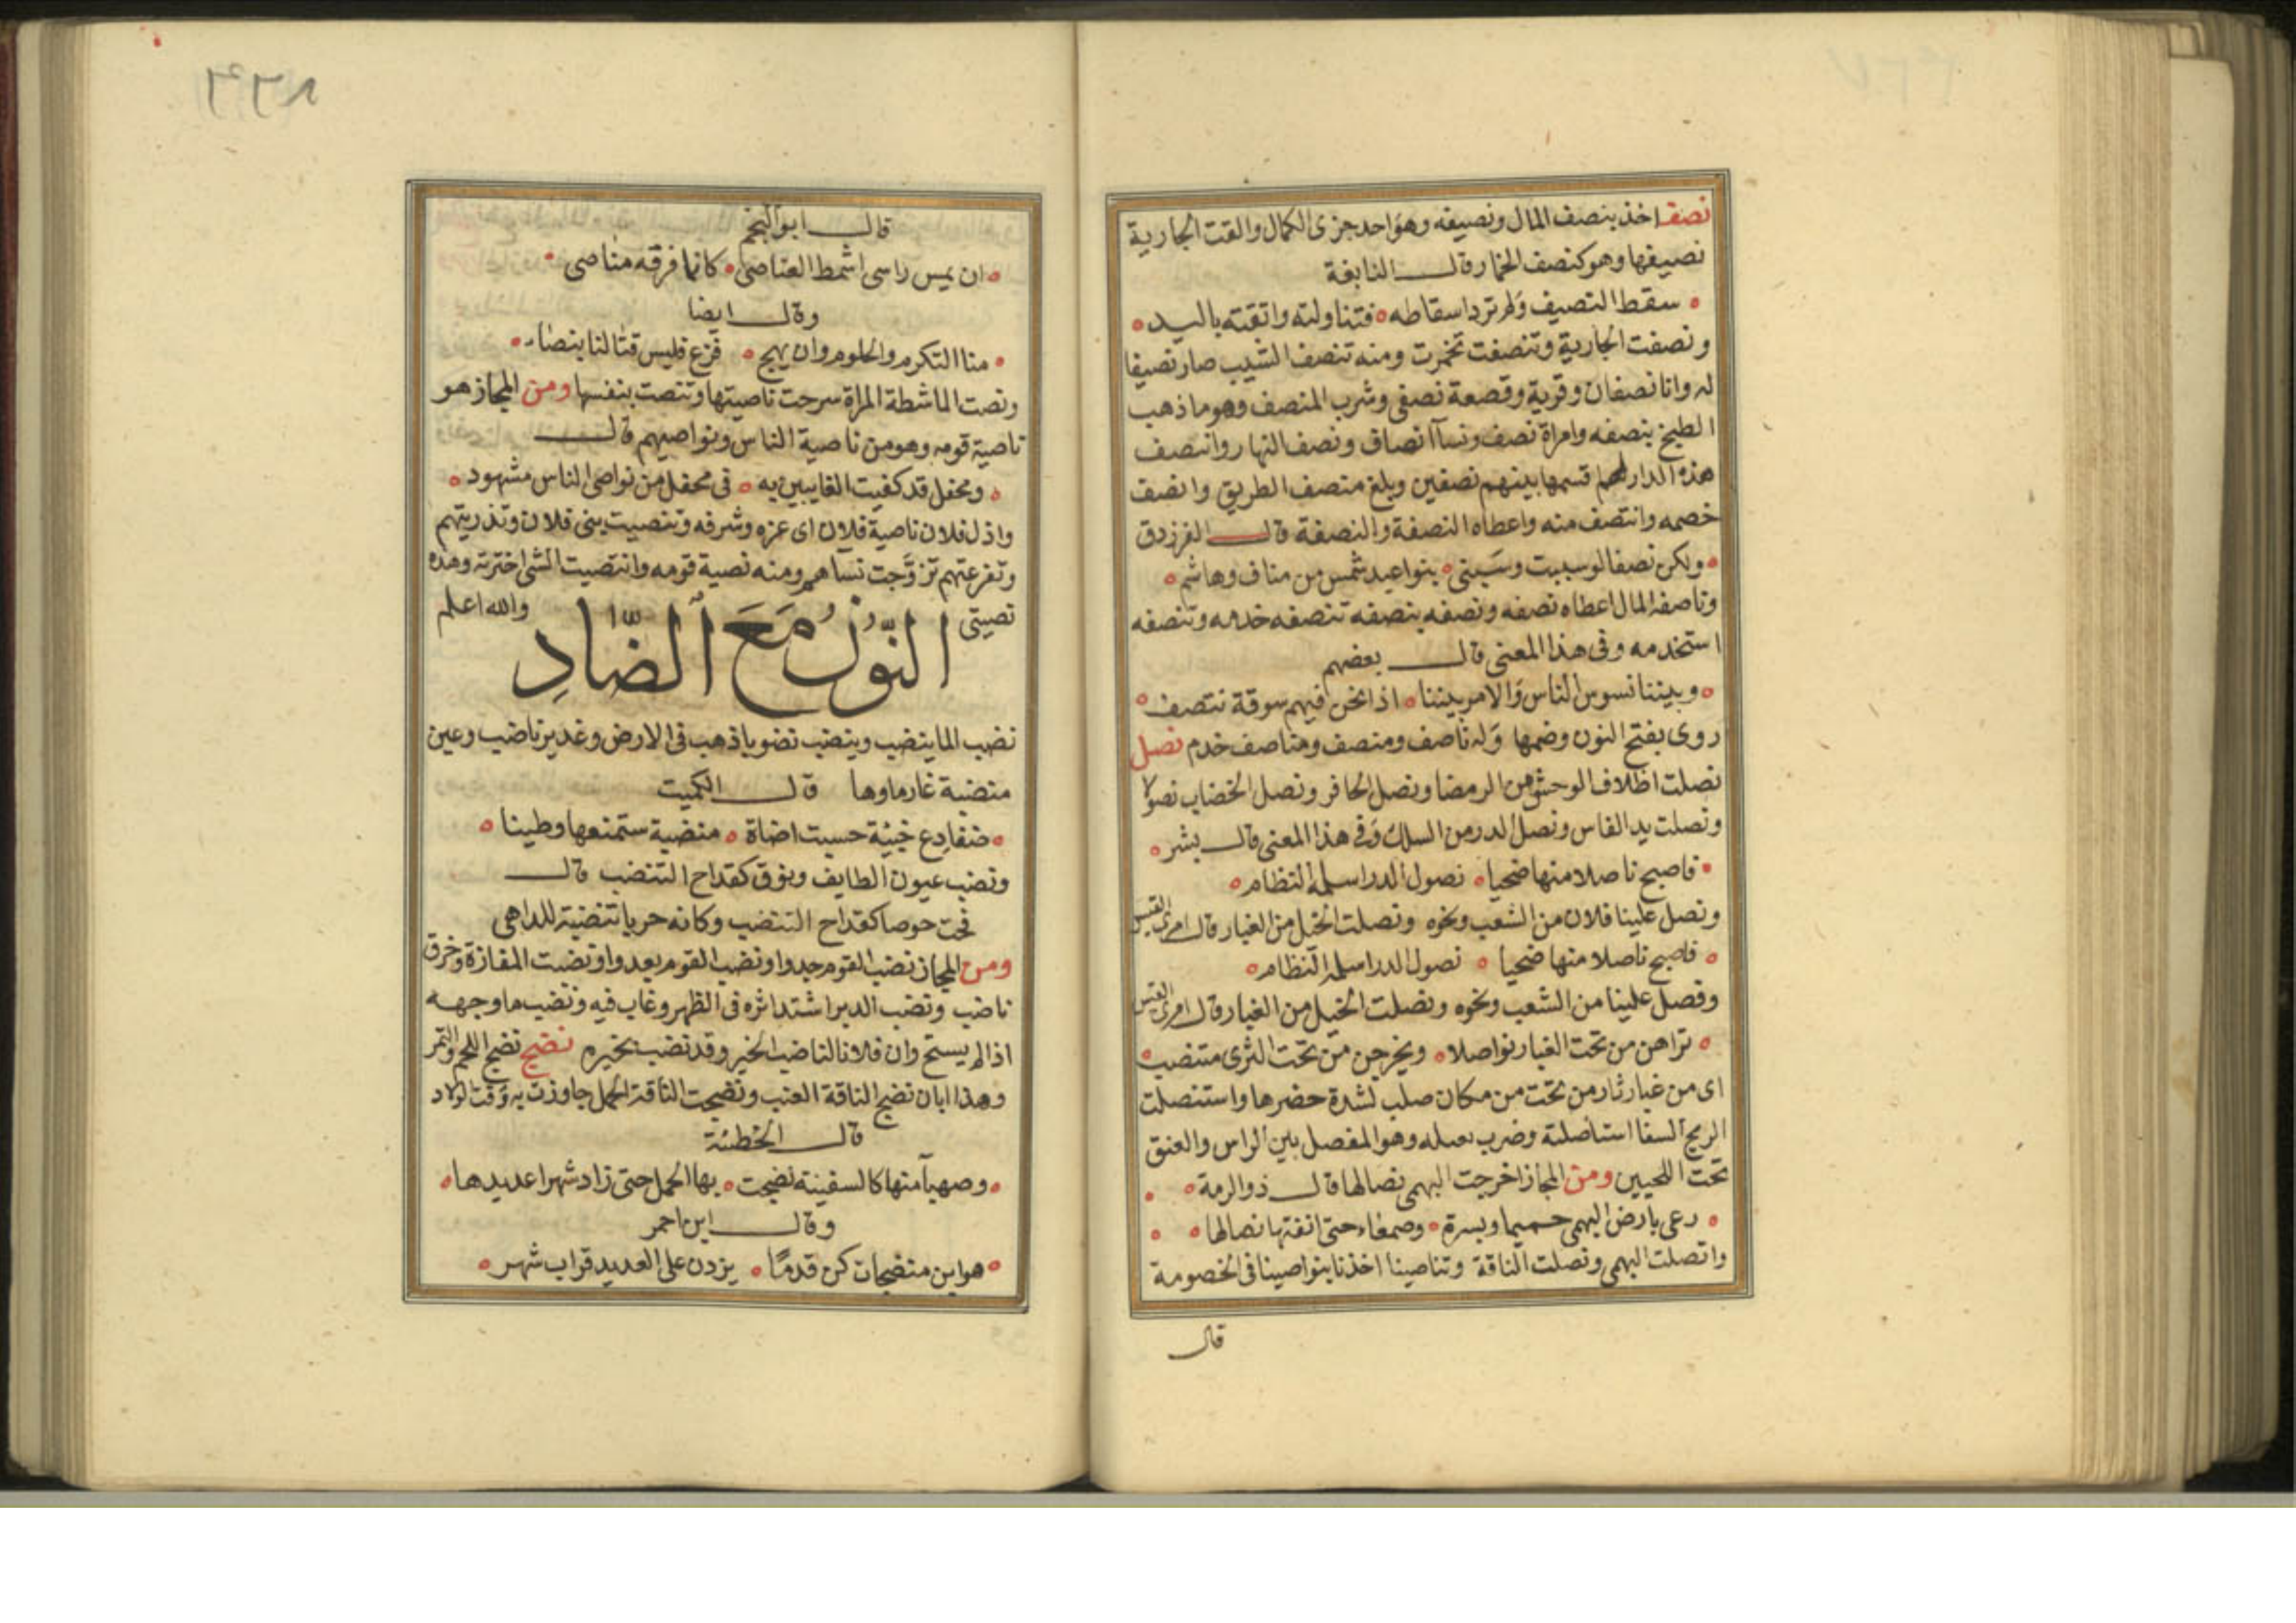 نصف اخذ بنصف المال ونصيفه وهو احد جزى الكمال والقت الجارية
نصيفها وهو كنصف الخمار قال النابغة
سقط النصيف ولم ترد اسقاطه فتناولته واتقته باليد
ونصفت الجارية وتنصفت تخمرت ومنه تنصف الشيب صار نصيفا
له وانا نصفان وقربة وقصعة نصفى وشرب المنصف وهو ما ذهب
الطبخ بنصفه وامراة نصف ونسآ انصاف ونصف النهار وانتصف
هذه الدار لهم قسمها بينهم نصفين وبلغ منتصف الطريق وانصف
خصمه وانتصف منه واعطاه النصفة والنصفة قال الفرزدق
ولكن نصفا لو سببت وسبنى بنو اعبد شمس من مناف وهاشم
وناصفه المال اعطاه نصفه ونصفه ينصفه تنصفه خدمه وتنصفه
استخدمه وفى هذا المعنى قال بعضهم
وبيننا نسوس الناس والامر بيننا اذا نحن فيهم سوقة نتصف
روى بفتح النون وضمها وله ناصف ومنصف ومناصف خدم نصل
نصلت اظلاف الوحش من الرمضا ونصل الحافر ونصل الخضاب نصولا
ونصلت يد الفاس ونصل الدر من السلك وفى هذا المعنى قال بشر
فاصبح ناصلا منها ضحيا نصول الدر اسلمه النظام
ونصل علينا فلان من الشعب ونحوه ونصلت الخيل من الغبار قال امرئ القيس
فاصبح ناصلا منها ضحيا نصول الدر اسلمه النظام
وفصل علينا من الشعب ونحوه ونصلت الخيل من الغبار قال امرئ القيس
تراهن من تحت الغبار نواصلا ويخرجن من تحت الثرى متنصب
اى من غبار ثار من تحت من مكان صلب لشدة حضرها واستنصلت
الريح السفا استاصلته وضرب نصله وهو المفصل بين الراس والعنق
تحت اللحيين ومن المجاز اخرجت البهمى نصالها قال ذوالرمة
رعى بارض البهمى حميما وبسرة وصمعاء حتى انفتها نصالها
وانصلت البهمى ونصلت الناقة وتناصينا اخذنا بنواصينا فى الخصومة
قال
قال ابوالنجم
ان يمس راسى اشمط العناصى كانما فرقه مناصى
وقال ايضا
منا التكرم والحلوم وان يهج فزع فليس قتالنا بنصاء
ونصت الماشطة المراة سرحت ناصيتها وتنصت بنفسها ومن المجاز هو
ناصية قومه وهو من ناصية الناس ونواصيهم قال
ومحفل قد كفيت الغايبين به فى محفل من نواصى الناس مشهود
واذل فلان ناصية فلان اى عزه وشرفه وتنصيت بنى فلان وتذريتهم
وتفرعتهم تزوجت نساهم ومنه نصية قومه وانتصيت الشى اخترته وهذه
نصيتى والله اعلم
النّون مَعَ الضّادِ
نضب الما ينضب وينضب نضوبا ذهب فى الارض وغدير ناضب وعين
منضبة غار ماوها قال الكميت
ضفادع خبئة حسبت اضاة منضبة ستمنعها وطينا
ونضب عيون الطايف وبوق كقداح التنضب قال
تحت حوصا كقداح التنضب وكانه حربا تنضبة للداهى
ومن المجاز نضب القوم جدوا ونضب القوم بعدوا ونضبت المفازة وخرق
ناضب ونضب الدبر اشتد اثره فى الظهر وغاب فيه ونضب ماوجهه
اذا لم يستح وان فلانا لناضب الخير وقد نضب خيره نضج نضج اللحم والتمر
وهذا ابان نضج الناقة العنب ونضجت الناقة الحمل جاوزت به وقت الولاد
قال الحطئة
وصهبآ منها كالسفينة نضجت بها الحمل حتى زاد شهرا عديدها
وقال ابن احمر
هو ابن منضجات كن قدمًا يزدن على العديد قراب شهر